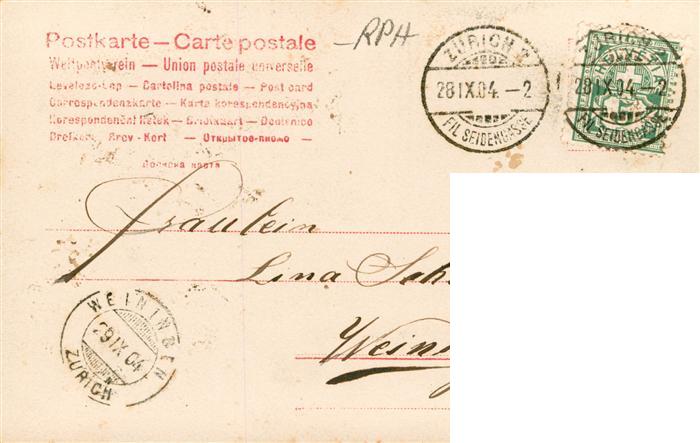 Postkarte — Carte postale
—RPH
Weltpostverein — Union postale universelle
Levelező-Lap — Cartolina postale — Post card
Correspondenzkarte — Karta korespondencyjna
Korespondenční lístek — Briefkaart — Dopisnice
Brefkort — Brev-Kort — Открытое-письмо —
Дописна карта
ZÜRICH
28 IX.04. — 2
FIL. SEIDENGASSE
ZÜRICH
28 IX.04. — 2
FIL. SEIDENGASSE
HELVETIA
Fräulein
Lina Sch
Wein
WEININGEN
29 IX 04
ZÜRICH